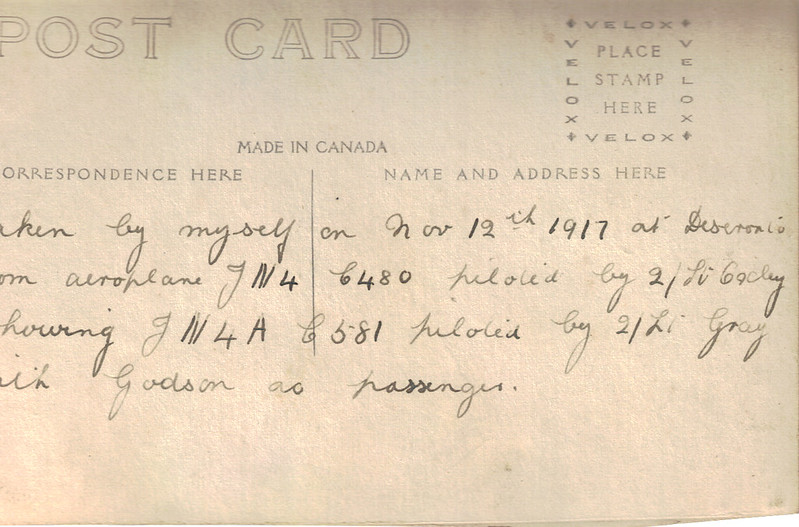 POST CARD
VELOX
VELOX PLACE VELOX
STAMP
HERE
VELOX
MADE IN CANADA
ORRESPONDENCE HERE NAME AND ADDRESS HERE
aken by myself on Nov 12th 1917 at Deseronto
om aeroplane JN4 C480 piloted by 2/Lt Coxley
howing JN4A C581 piloted by 2/Lt Gray
ith Godson as passenger.